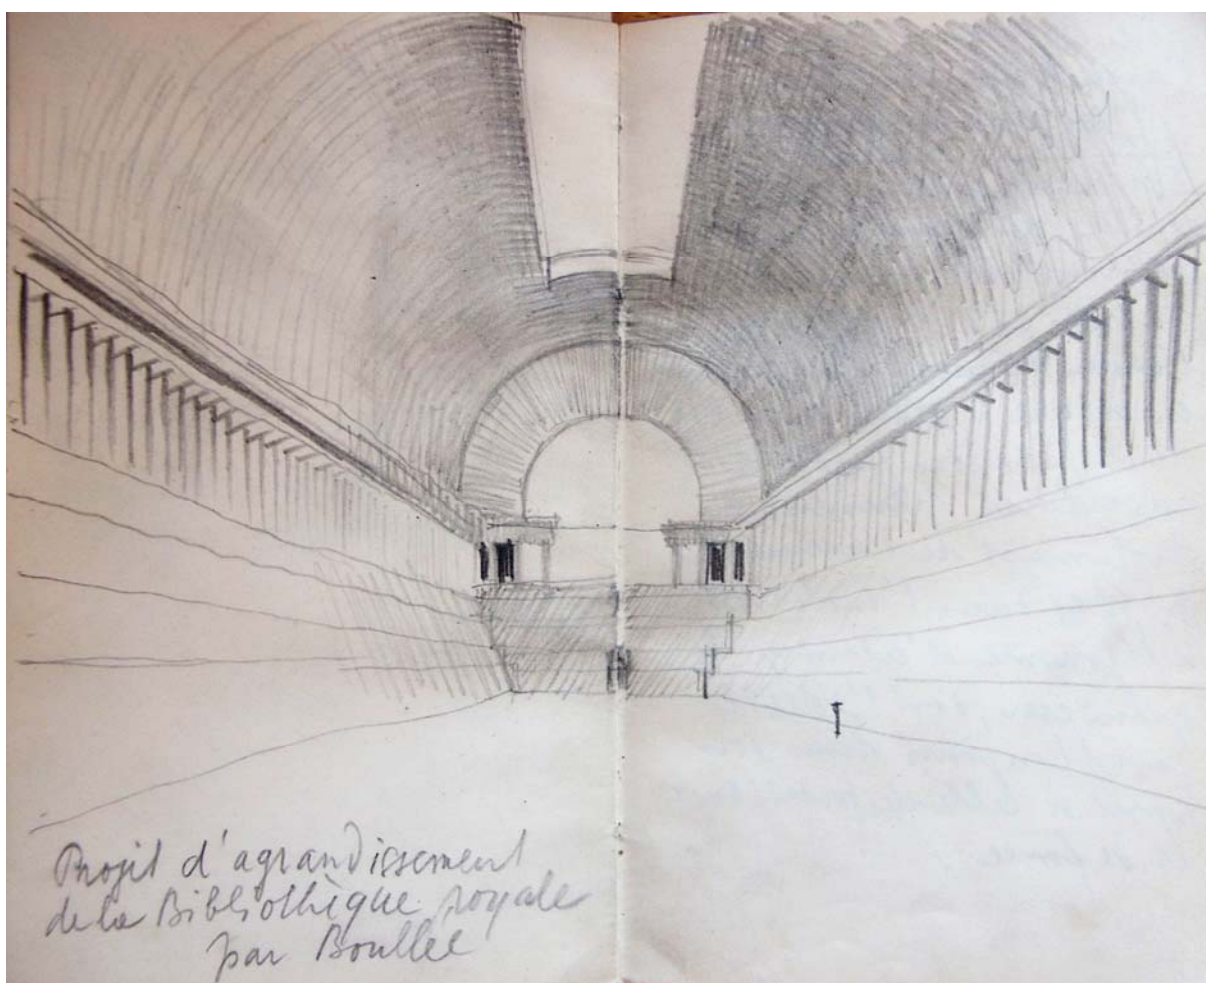 Projet d'agrandissement
de la Bibliothèque royale
par Boullée